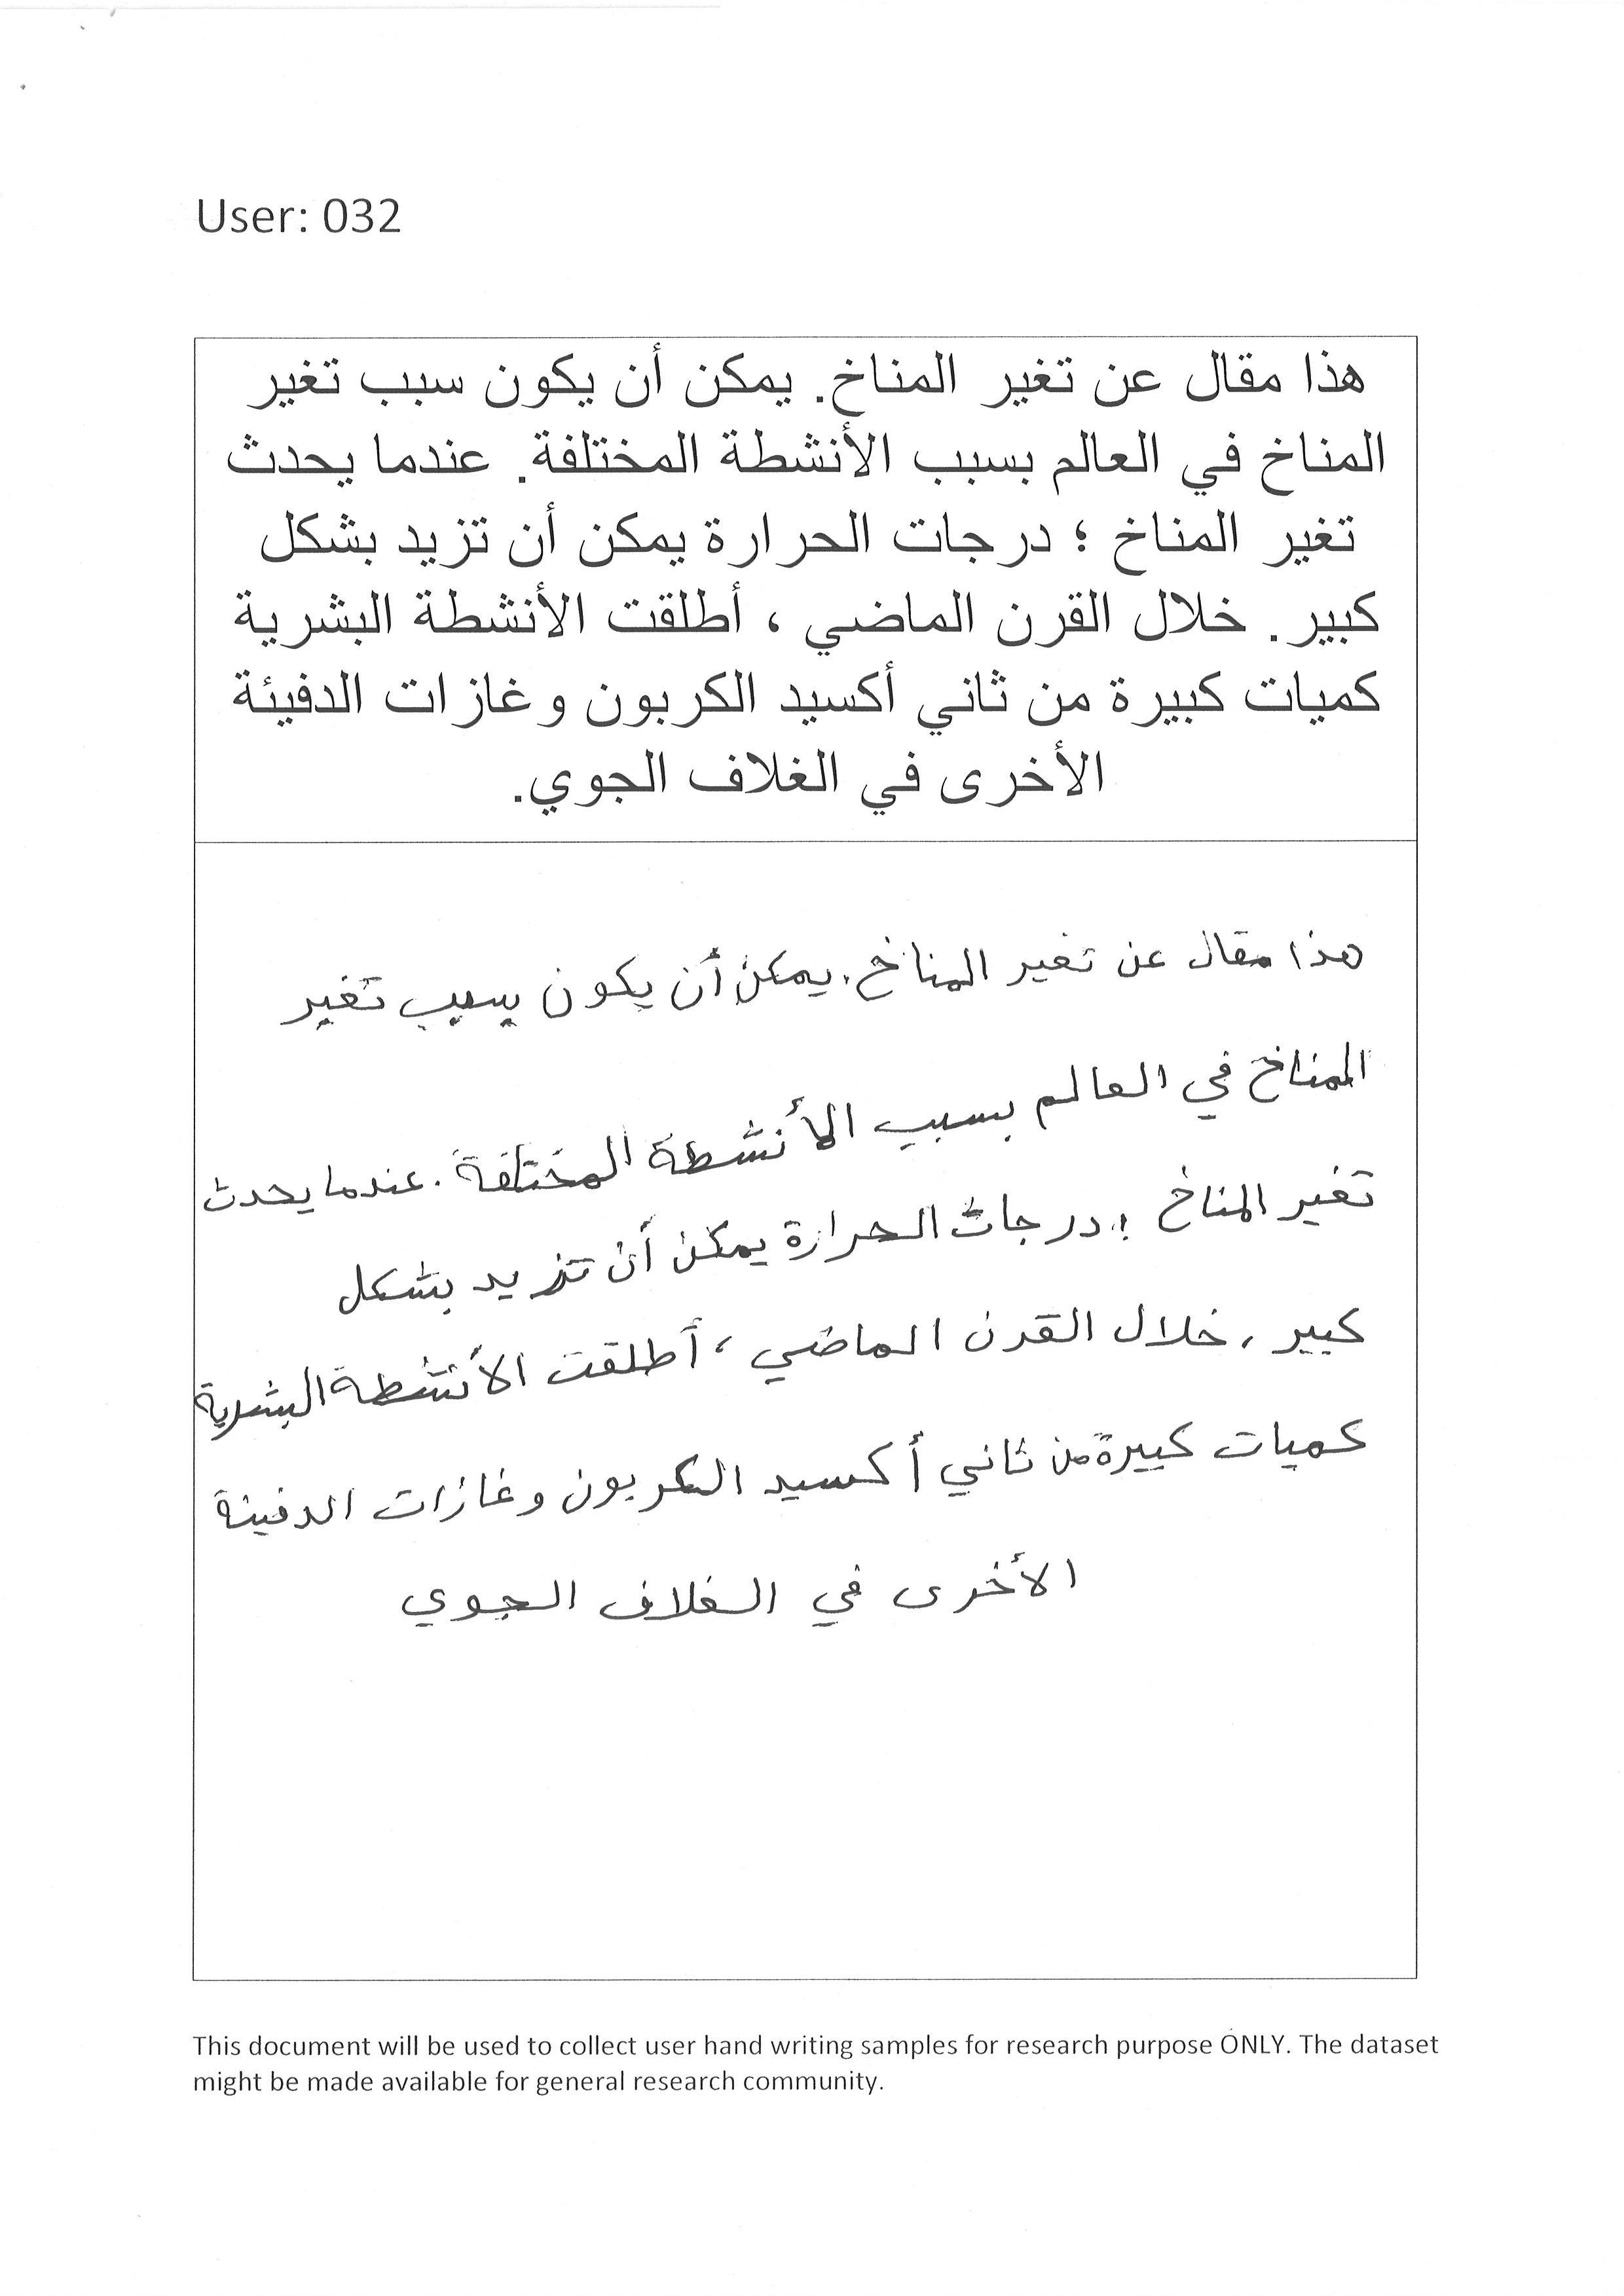 User: 032
هذا مقال عن تغير المناخ. يمكن أن يكون سبب تغير
المناخ في العالم بسبب الأنشطة المختلفة. عندما يحدث
تغير المناخ ؛ درجات الحرارة يمكن أن تزيد بشكل
كبير. خلال القرن الماضي ، أطلقت الأنشطة البشرية
كميات كبيرة من ثاني أكسيد الكربون وغازات الدفيئة
الأخرى في الغلاف الجوي.
هذا مقال عن تغير المناخ. يمكن أن يكون بسبب تغير
المناخ في العالم بسبب الأنشطة المختلفة. عندما يحدث
تغير المناخ ؛ درجات الحرارة يمكن أن تزيد بشكل
كبير. خلال القرن الماضي ، أطلقت الأنشطة البشرية
كميات كبيرة من ثاني أكسيد الكربون وغازات الدفينة
الأخرى في الغلاف الجوي
This document will be used to collect user hand writing samples for research purpose ONLY. The dataset
might be made available for general research community.